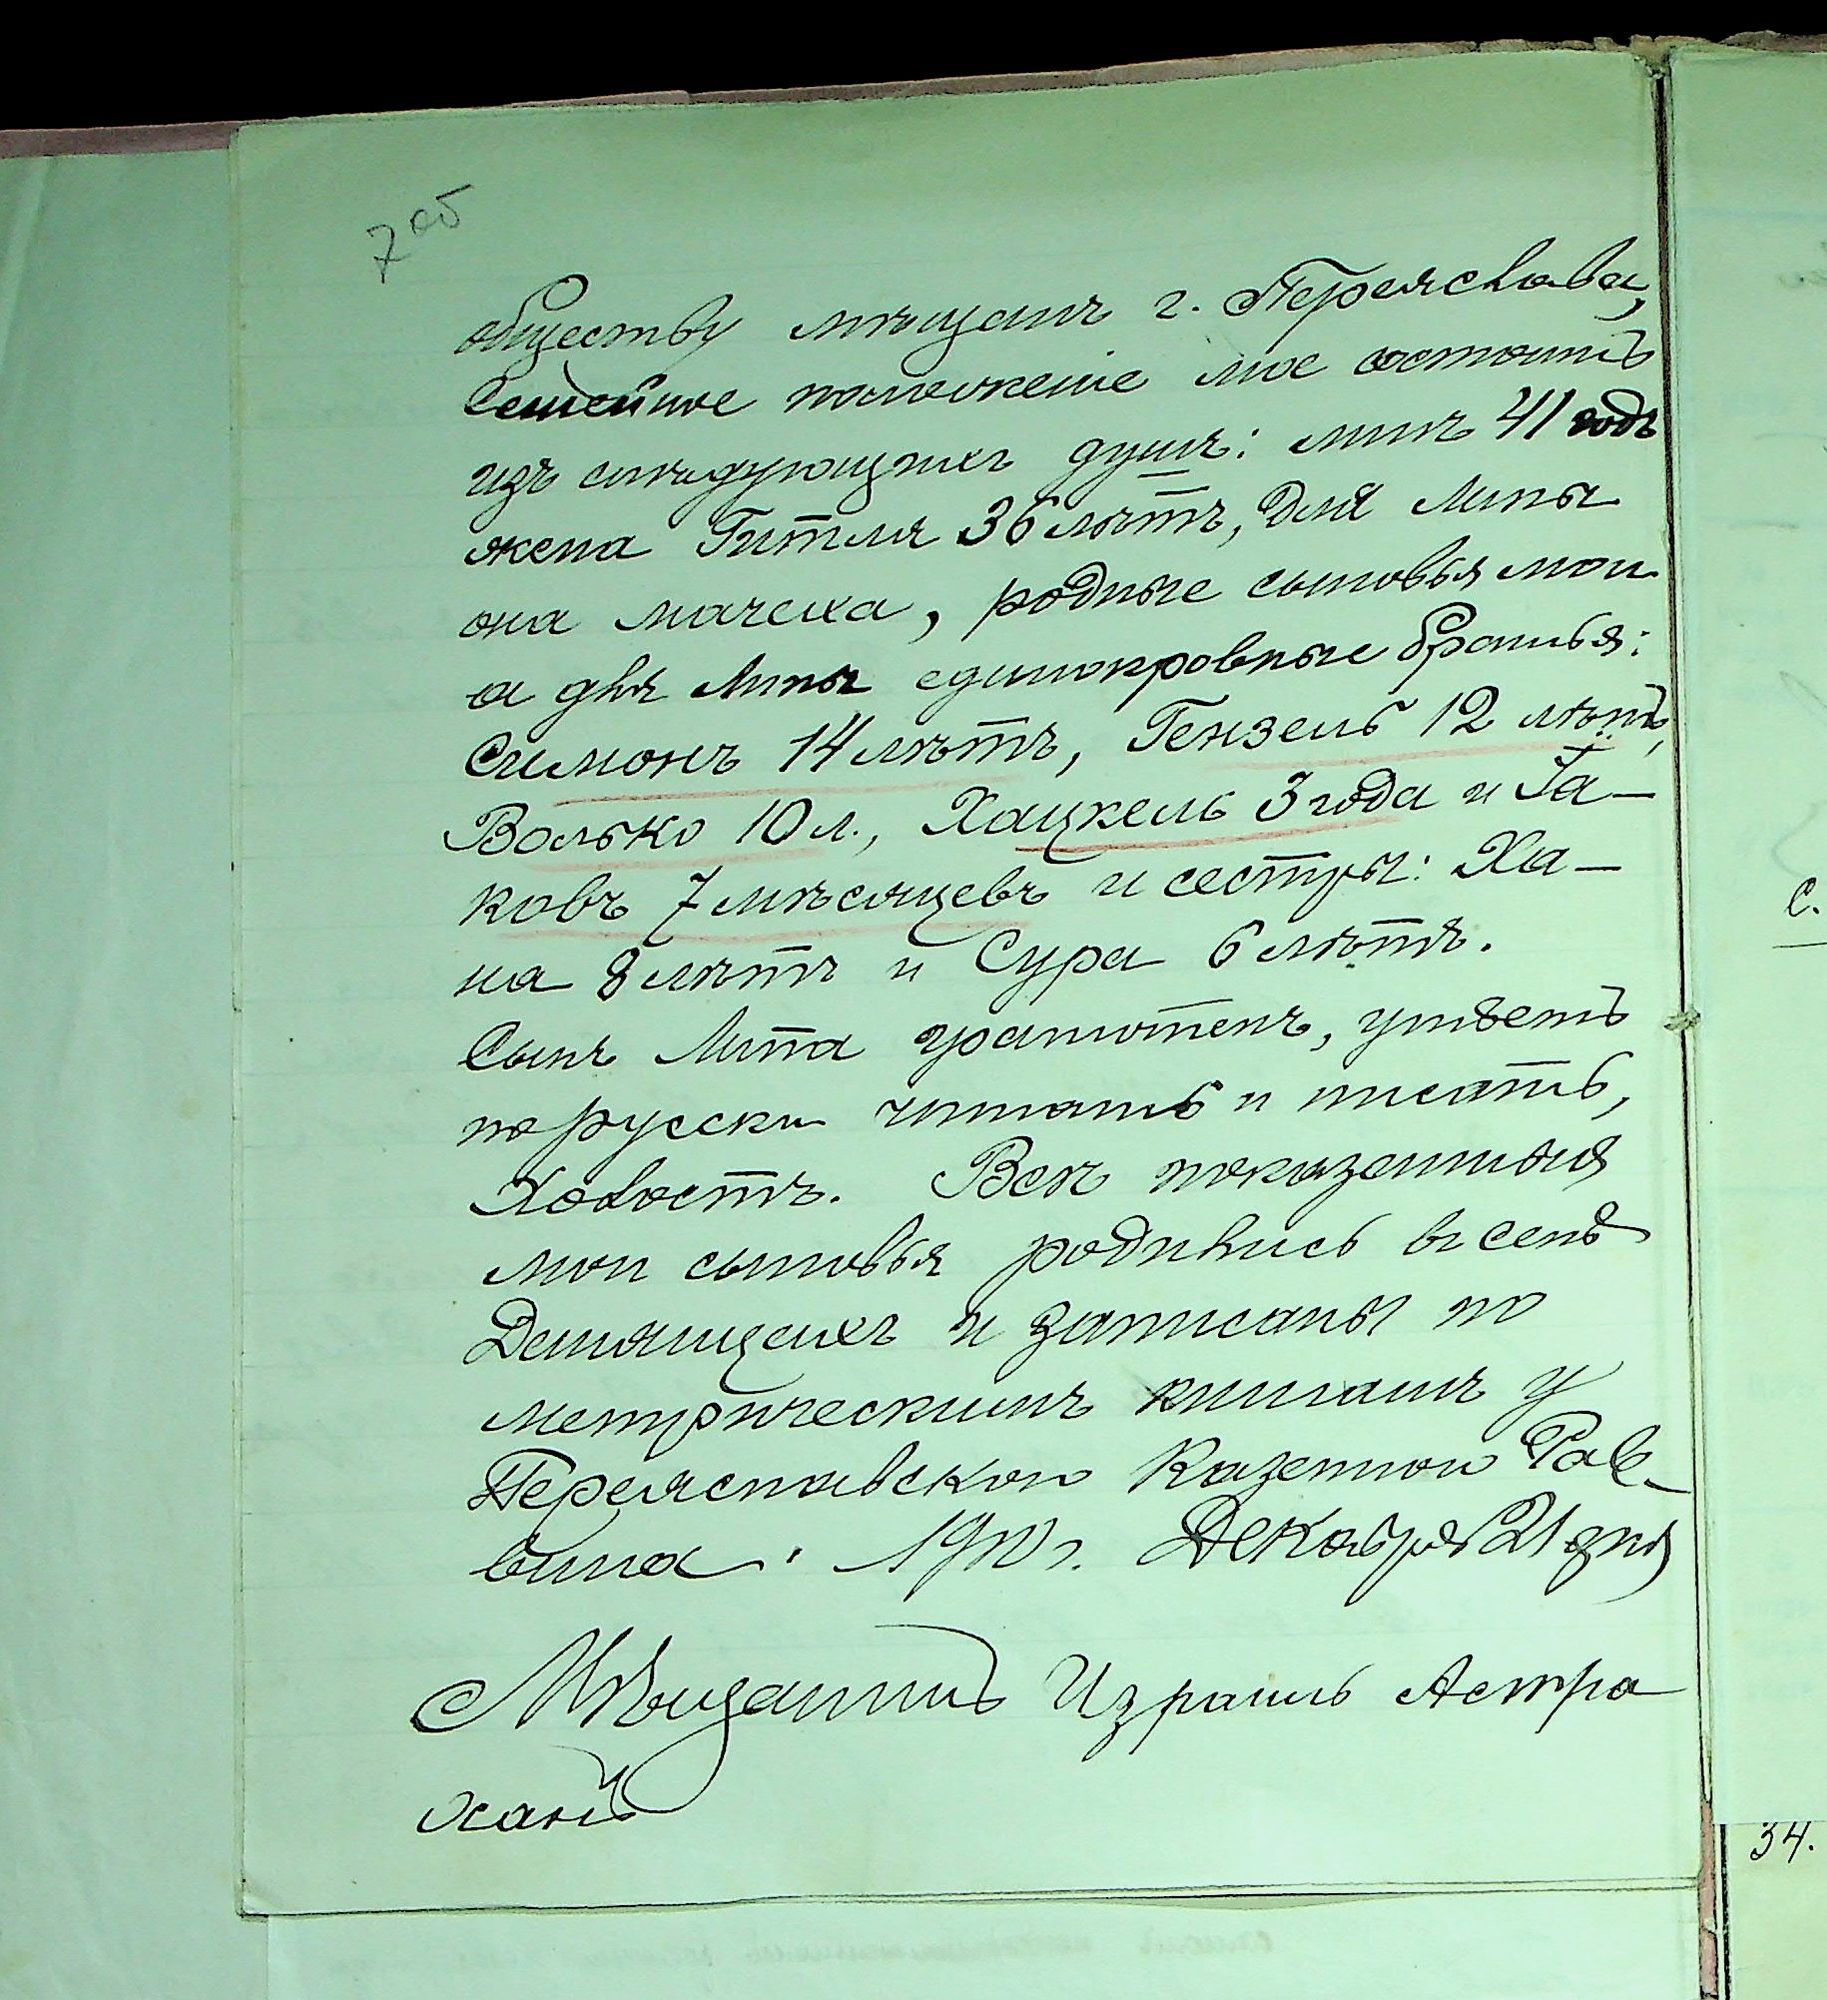 7 об
обществу мѣщанъ г. Переяслава,
Семейное положеніе мое состоитъ
изъ слѣдующихъ душъ: мнѣ 41 годъ
жена Гитля 36 лѣтъ, для Липы
она мачеха, родные сыновья мои
а для Липы единокровные братья:
Симонъ 14 лѣтъ, Гензель 12 лѣтъ,
Волько 10 л., Хацкель 3 года и Іа-
ковъ 7 мѣсяцевъ и сестры: Ха-
на 8 лѣтъ и Сура 6 лѣтъ.
Сынъ Липа грамотенъ, умѣетъ
по русски читать и писать,
Холостъ. Всѣ показанныя
мои сыновья родились въ селѣ
Денямцахъ и записаны по
метрическимъ книгамъ у
Переяславскои Казеннои Рав-
вина. 1910 г. Декабря 21 дня
Мѣщанинъ Израиль Астра
ханъ
с.
34.